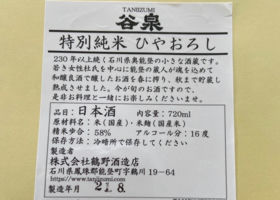 TANIIZUMI
谷泉
特別純米 ひやおろし
230年以上続く石川県奥能登の小さな酒蔵です。
若き女性杜氏を中心に能登の蔵人が魂を込めて
和醸良酒で醸したお酒を春に搾り、秋まで貯蔵し
熟成させました。今が旬のお酒ですので、
是非お料理と一緒にお楽しみくださいませ。
品目:日本酒 内容量:720ml
原材料名:米(国産)・米麹(国産米)
精米歩合:58% アルコール分:16度
保存方法:冷暗所で保存してください
製造者
株式会社鶴野酒造店
石川県鳳珠郡能登町字鵜川19-64
https://www.taniizumi.com
製造年月 21.8.